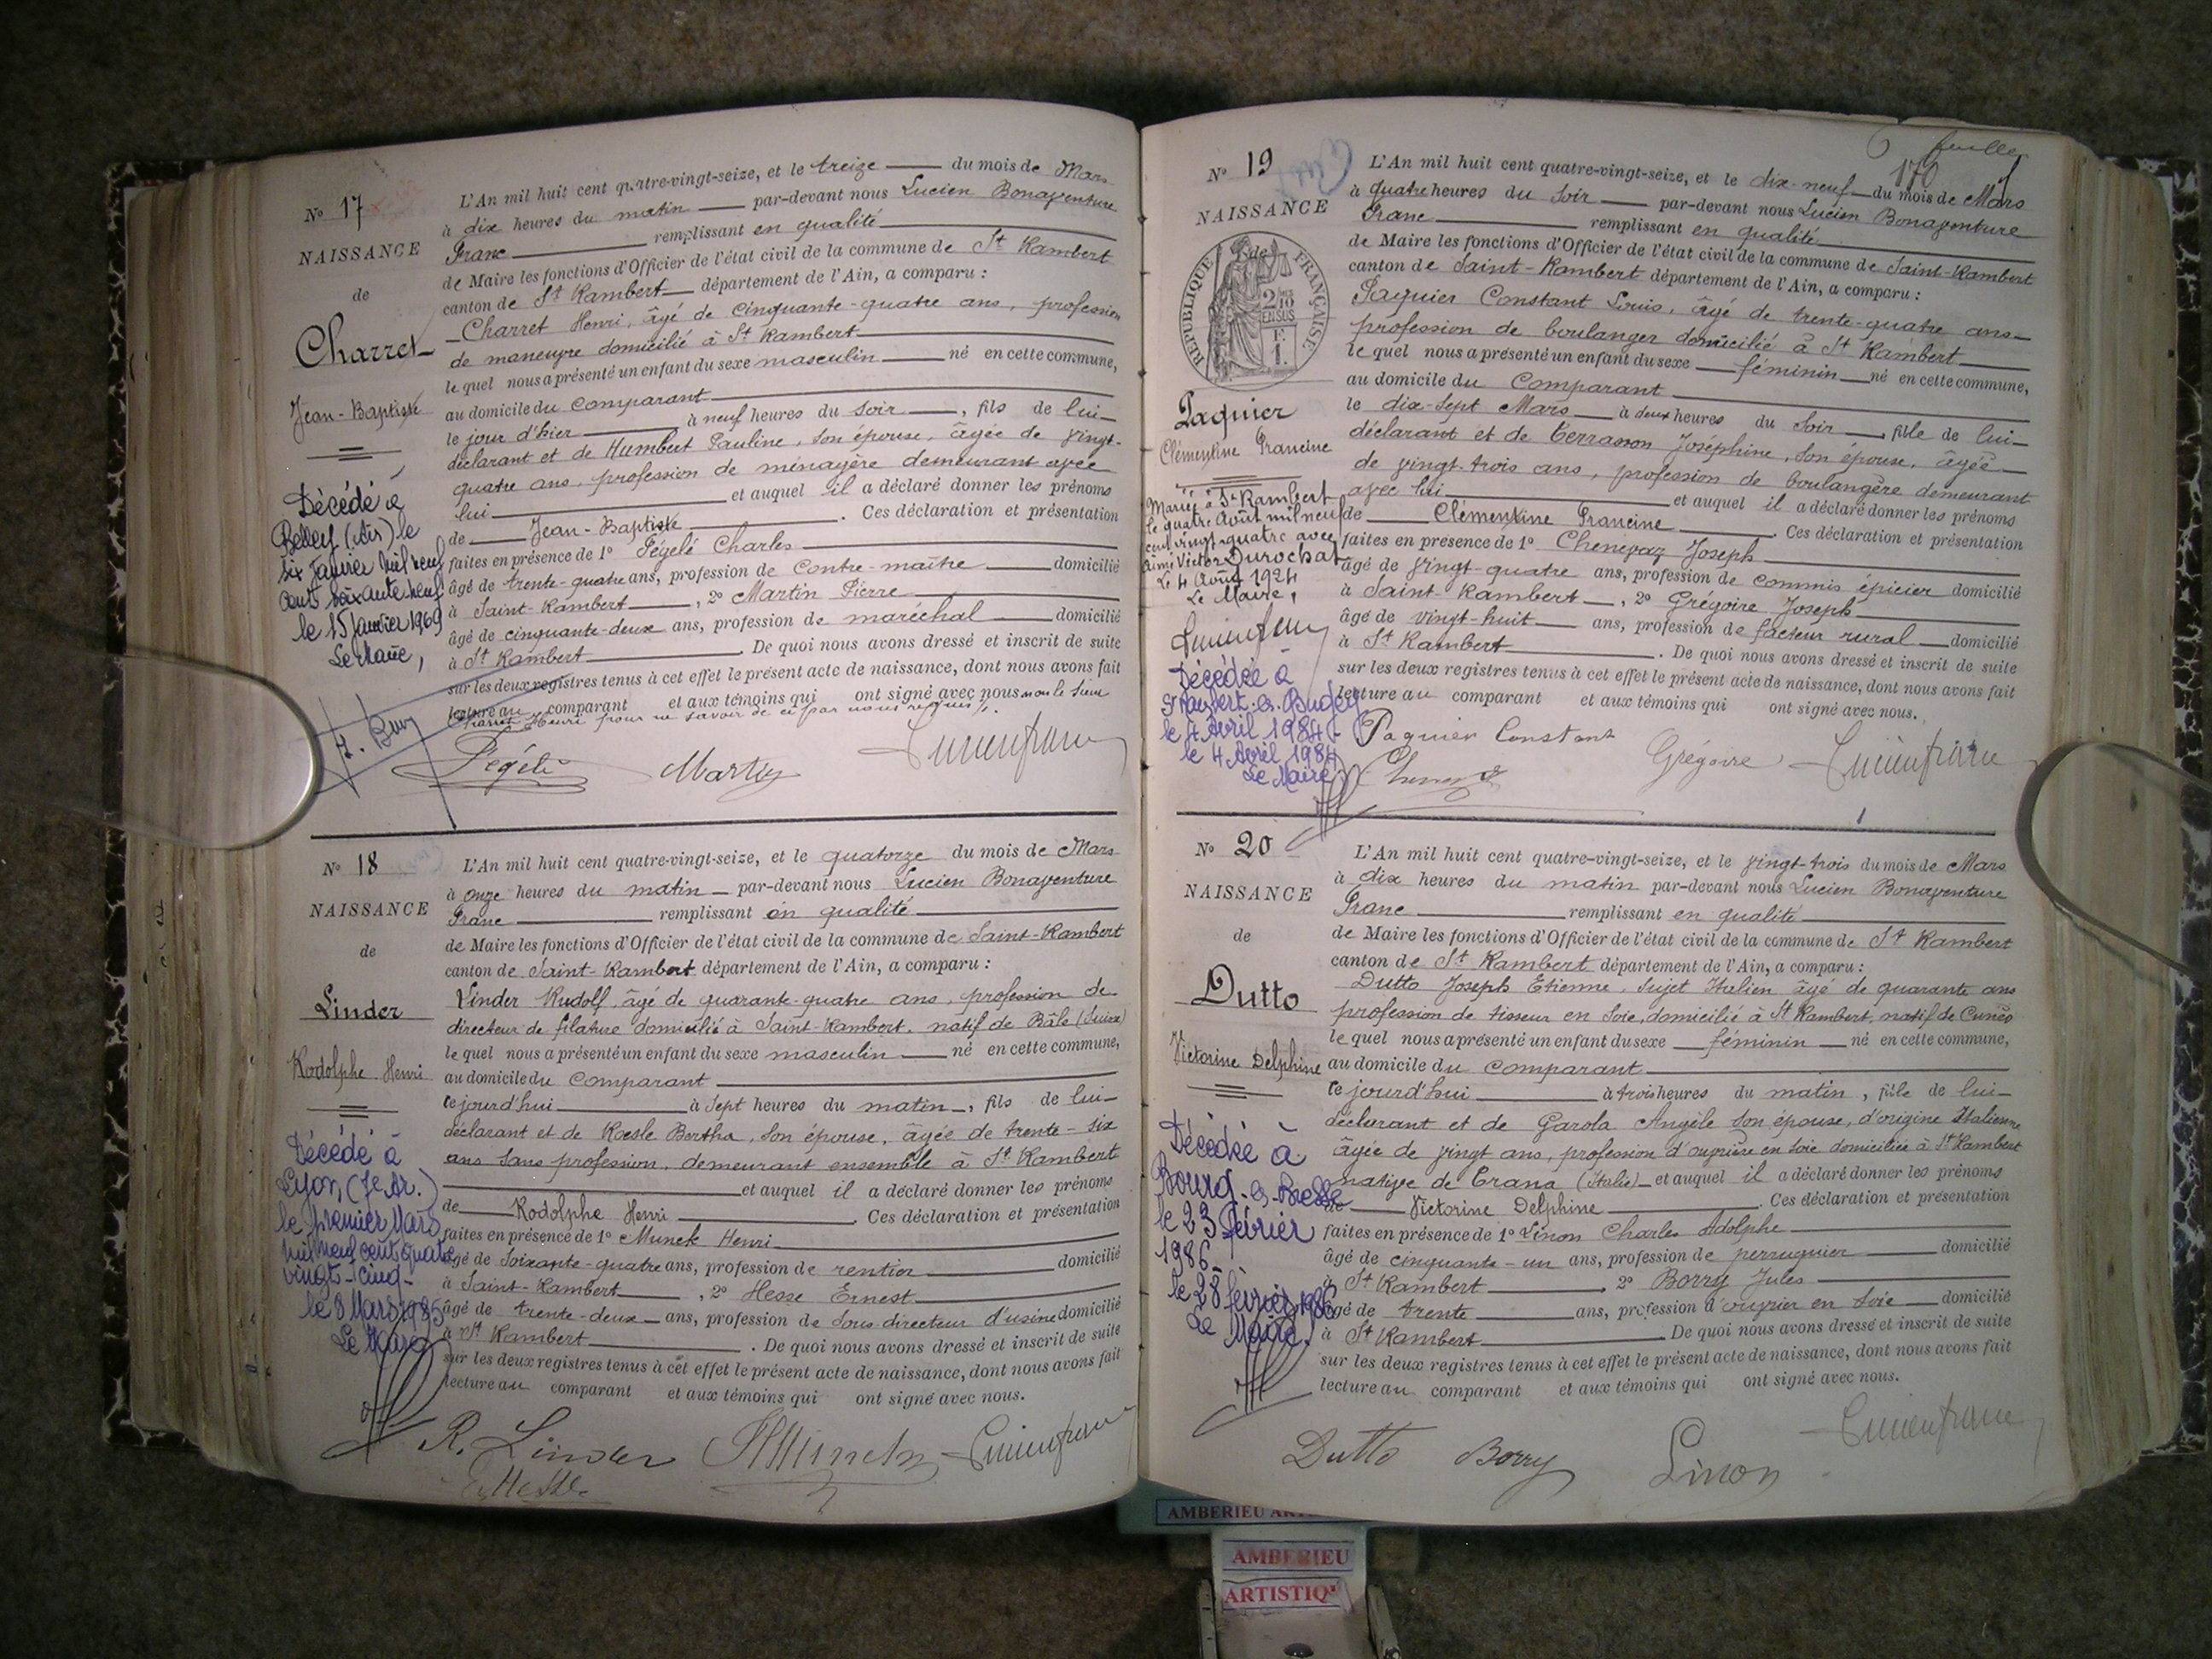 No 17
NAISSANCE
de
Charret
Jean-Baptiste
Décédé à
Belley (Ain) le
six janvier mil neuf
cent soixante-neuf
le 15 janvier 1969
Le Maire,
L'An mil huit cent quatre-vingt-seize, et le treize du mois de Mars
à dix heures du matin par-devant nous Lucien Bonaventure
Franc remplissant en qualité
de Maire les fonctions d'Officier de l'état civil de la commune de St Rambert
canton de St Rambert département de l'Ain, a comparu :
Charret Henri, âgé de cinquante-quatre ans, profession
de maneuvre domicilié à St Rambert
le quel nous a présenté un enfant du sexe masculin né en cette commune,
au domicile du comparant
le jour d'hier à neuf heures du soir, fils de lui
déclarant et de Humbert Pauline, son épouse, âgée de vingt-
quatre ans, profession de ménagère demeurant avec
lui et auquel il a déclaré donner les prénoms
de Jean-Baptiste. Ces déclaration et présentation
faites en présence de 1o Fégelé Charles
âgé de trente-quatre ans, profession de contre-maître domicilié
à Saint-Rambert, 2o Martin Pierre
âgé de cinquante-deux ans, profession de maréchal domicilié
à St Rambert. De quoi nous avons dressé et inscrit de suite
sur les deux registres tenus à cet effet le présent acte de naissance, dont nous avons fait
lecture au comparant et aux témoins qui ont signé avec nous non le sieur
Charret Henri pour ne savoir de ce par nous requis.
Fégelé Martin Lucien franc
No 18
NAISSANCE
de
Linder
Rodolphe Henri
Décédé à
Lyon (7e Ar.)
le premier Mars
mil neuf cent quatre
vingt-cinq
le 8 Mars 1985
Le Maire
L'An mil huit cent quatre-vingt-seize, et le quatorze du mois de Mars
à onze heures du matin par-devant nous Lucien Bonaventure
Franc remplissant en qualité
de Maire les fonctions d'Officier de l'état civil de la commune de Saint-Rambert
canton de Saint-Rambert département de l'Ain, a comparu :
Linder Rudolf, âgé de quarante-quatre ans, profession de
directeur de filature domicilié à Saint-Rambert, natif de Bâle (Suisse)
le quel nous a présenté un enfant du sexe masculin né en cette commune,
au domicile du comparant
ce jourd'hui à sept heures du matin, fils de lui
déclarant et de Roesle Bertha, son épouse, âgée de trente-six
ans sans profession, demeurant ensemble à St Rambert
et auquel il a déclaré donner les prénoms
de Rodolphe Henri. Ces déclaration et présentation
faites en présence de 1o Munck Henri
âgé de soixante-quatre ans, profession de rentier domicilié
à Saint-Rambert, 2o Hesse Ernest
âgé de trente-deux ans, profession de sous-directeur d'usine domicilié
à St Rambert. De quoi nous avons dressé et inscrit de suite
sur les deux registres tenus à cet effet le présent acte de naissance, dont nous avons fait
lecture au comparant et aux témoins qui ont signé avec nous.
R. Linder HMunck Lucien franc
E. Hesse
feuille
170
No 19
NAISSANCE
de
RÉPUBLIQUE FRANÇAISE
2/10 EN SUS
F.
1.
Paquier
Clémentine Francine
Mariée à St Rambert
le quatre Août mil neuf
cent vingt-quatre avec
Aimé Victor Durochat
Le 4 Août 1924
Le Maire,
Lucien franc
Décédée à
St Rambert-en-Bugey
le 4 Avril 1984
le 4 Avril 1984
Le Maire
L'An mil huit cent quatre-vingt-seize, et le dix-neuf du mois de Mars
à quatre heures du soir par-devant nous Lucien Bonaventure
Franc remplissant en qualité
de Maire les fonctions d'Officier de l'état civil de la commune de Saint-Rambert
canton de Saint-Rambert département de l'Ain, a comparu :
Paquier Constant Louis, âgé de trente-quatre ans
profession de boulanger domicilié à St Rambert
le quel nous a présenté un enfant du sexe féminin né en cette commune,
au domicile du comparant
le dix-sept Mars à deux heures du soir, fille de lui
déclarant et de Terrasson Joséphine, son épouse, âgée
de vingt-trois ans, profession de boulangère demeurant
avec lui et auquel il a déclaré donner les prénoms
de Clémentine Francine. Ces déclaration et présentation
faites en présence de 1o Chenevaz Joseph
âgé de vingt-quatre ans, profession de commis épicier domicilié
à Saint-Rambert, 2o Grégoire Joseph
âgé de vingt-huit ans, profession de facteur rural domicilié
à St Rambert. De quoi nous avons dressé et inscrit de suite
sur les deux registres tenus à cet effet le présent acte de naissance, dont nous avons fait
lecture au comparant et aux témoins qui ont signé avec nous.
Paquier Constant Grégoire Lucien franc
No 20
NAISSANCE
de
Dutto
Victorine Delphine
Décédée à
Bourg-en-Bresse
le 23 février
1986
le 28 février 1986
Le Maire.
L'An mil huit cent quatre-vingt-seize, et le vingt-trois du mois de Mars
à dix heures du matin par-devant nous Lucien Bonaventure
Franc remplissant en qualité
de Maire les fonctions d'Officier de l'état civil de la commune de St Rambert
canton de St Rambert département de l'Ain, a comparu :
Dutto Joseph Etienne, sujet Italien âgé de quarante ans
profession de tisseur en soie, domicilié à St Rambert, natif de Cunéo
le quel nous a présenté un enfant du sexe féminin né en cette commune,
au domicile du comparant
ce jourd'hui à trois heures du matin, fille de lui
déclarant et de Garola Angèle son épouse, d'origine Italienne
âgée de vingt ans, profession d'ouvrière en soie domiciliée à St Rambert
native de Trana (Italie) et auquel il a déclaré donner les prénoms
de Victorine Delphine. Ces déclaration et présentation
faites en présence de 1o Linon Charles Adolphe
âgé de cinquante-un ans, profession de perruquier domicilié
à St Rambert, 2o Borry Jules
âgé de trente ans, profession d'ouvrier en soie domicilié
à St Rambert. De quoi nous avons dressé et inscrit de suite
sur les deux registres tenus à cet effet le présent acte de naissance, dont nous avons fait
lecture au comparant et aux témoins qui ont signé avec nous.
Dutto Borry Linon Lucien franc
AMBERIEU
AMBERIEU
ARTISTIQ